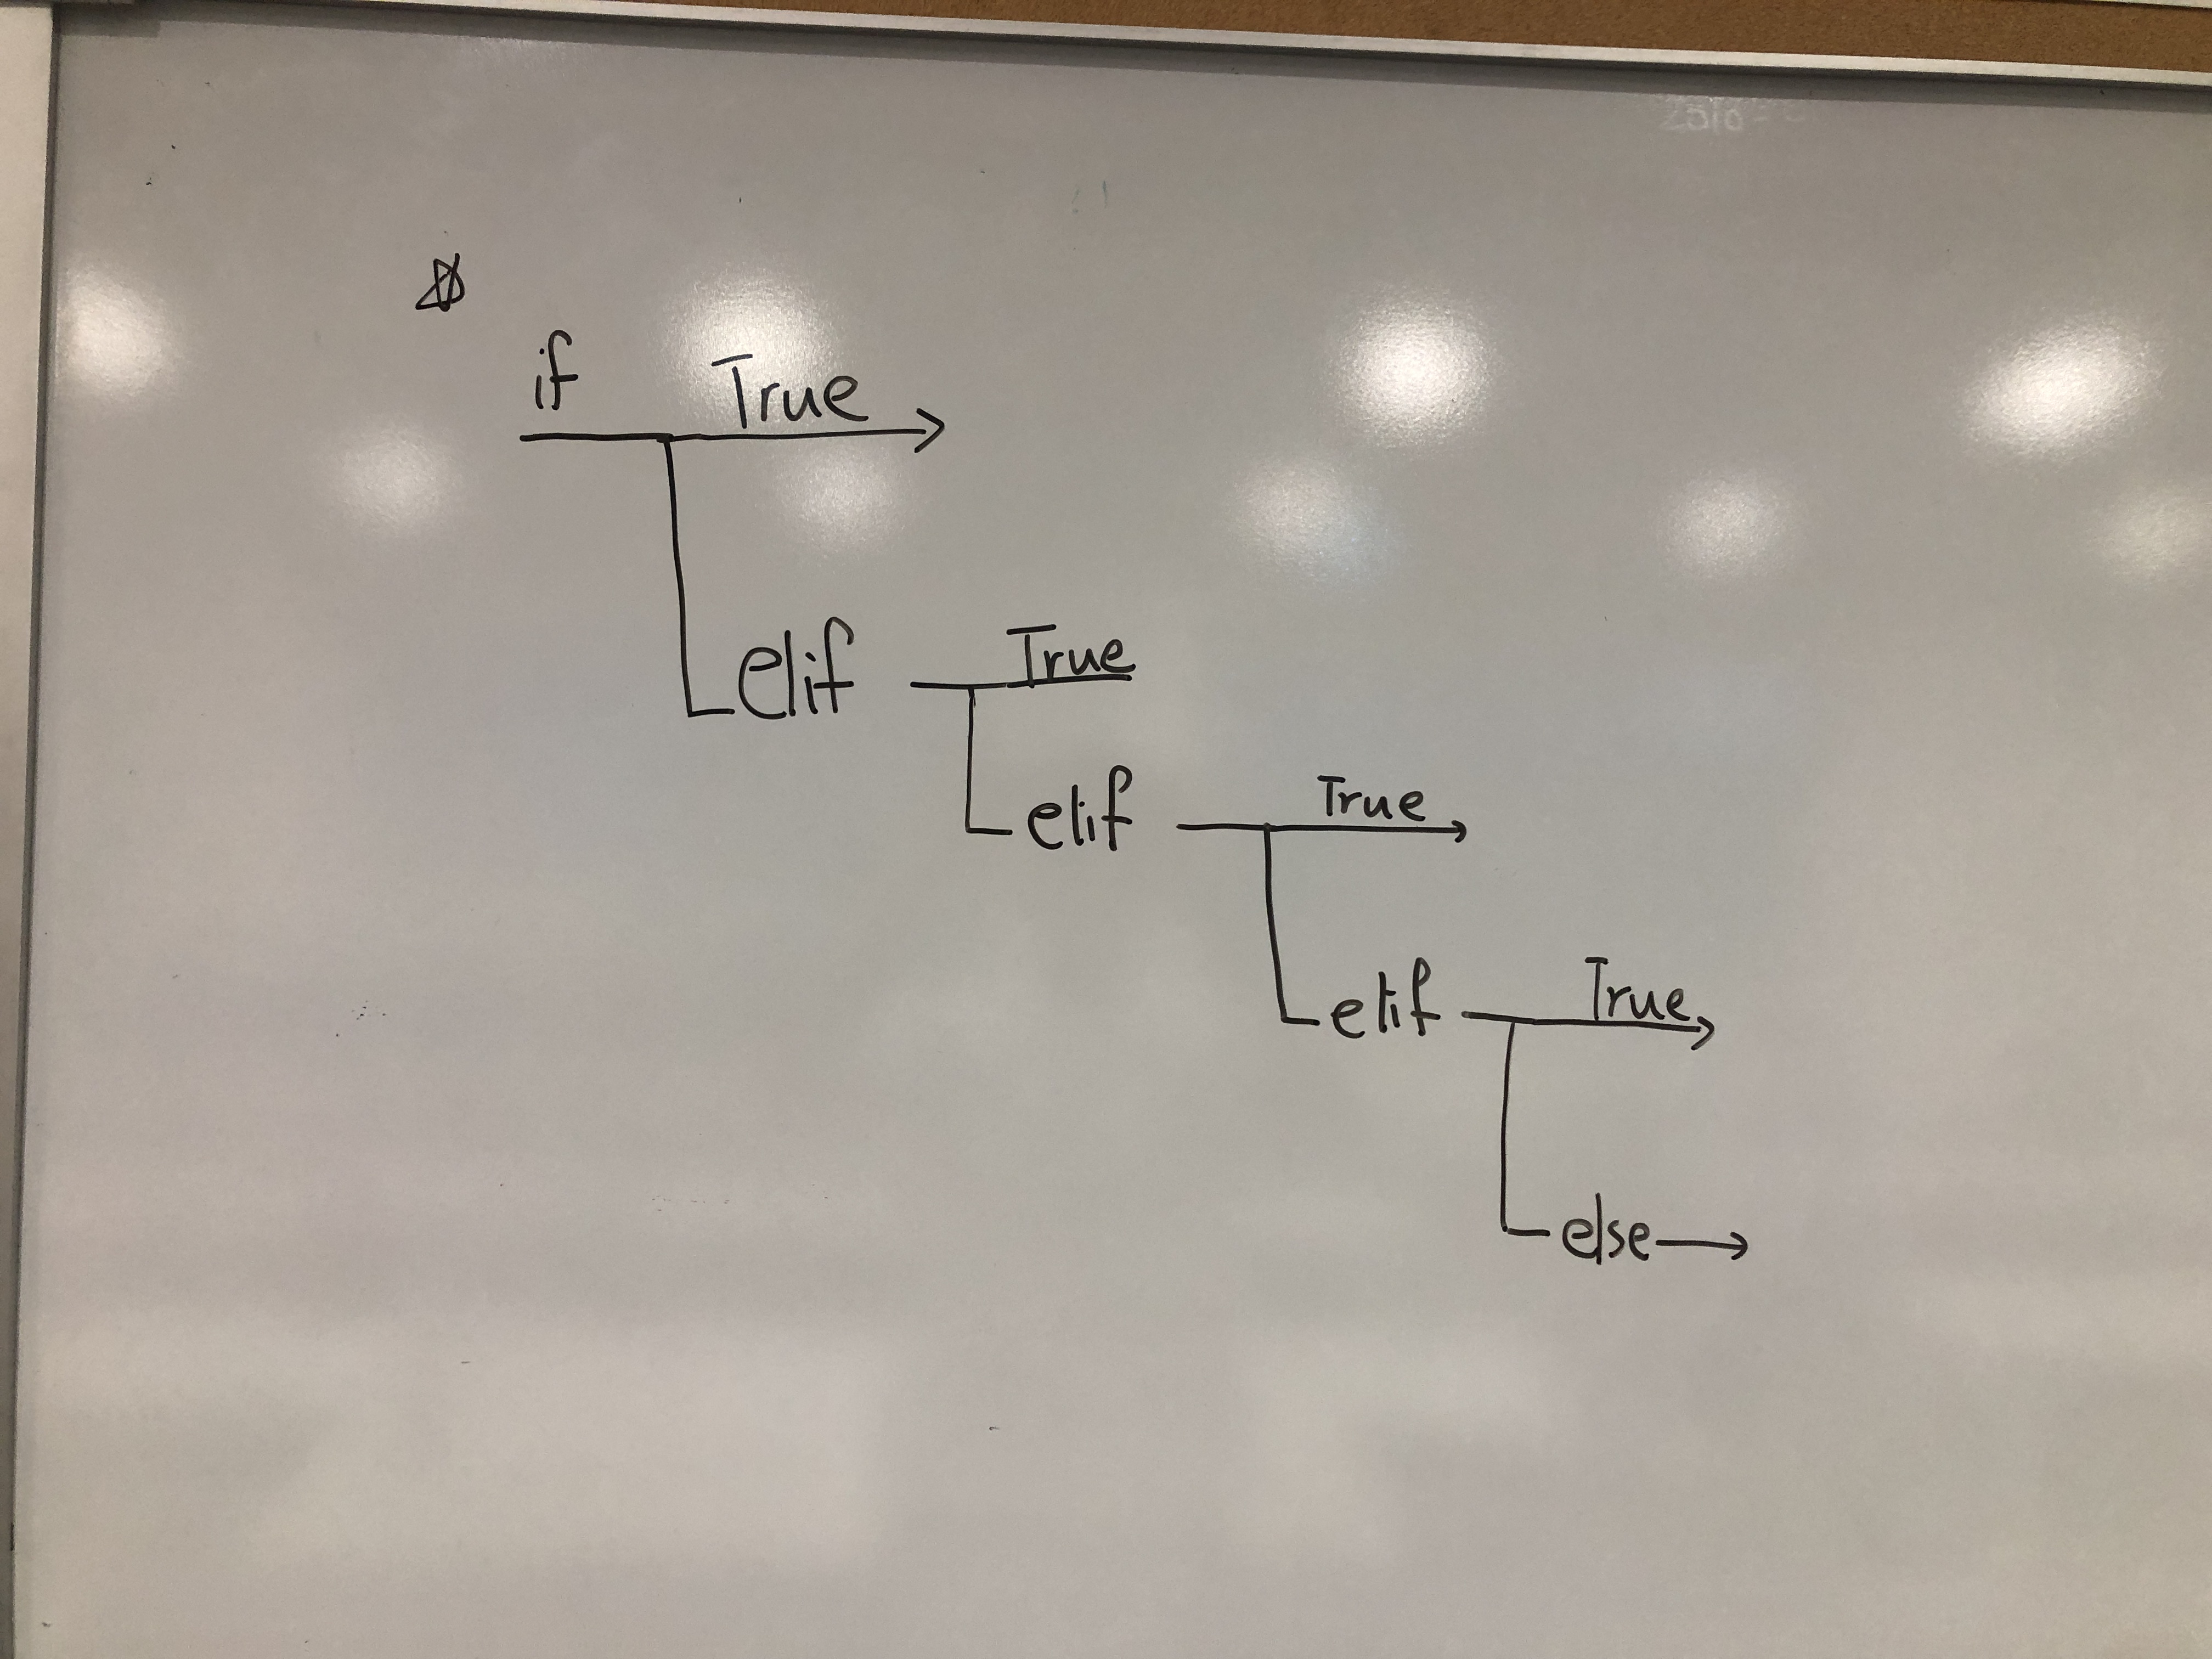 if True
elif True
elif True
elif True
else